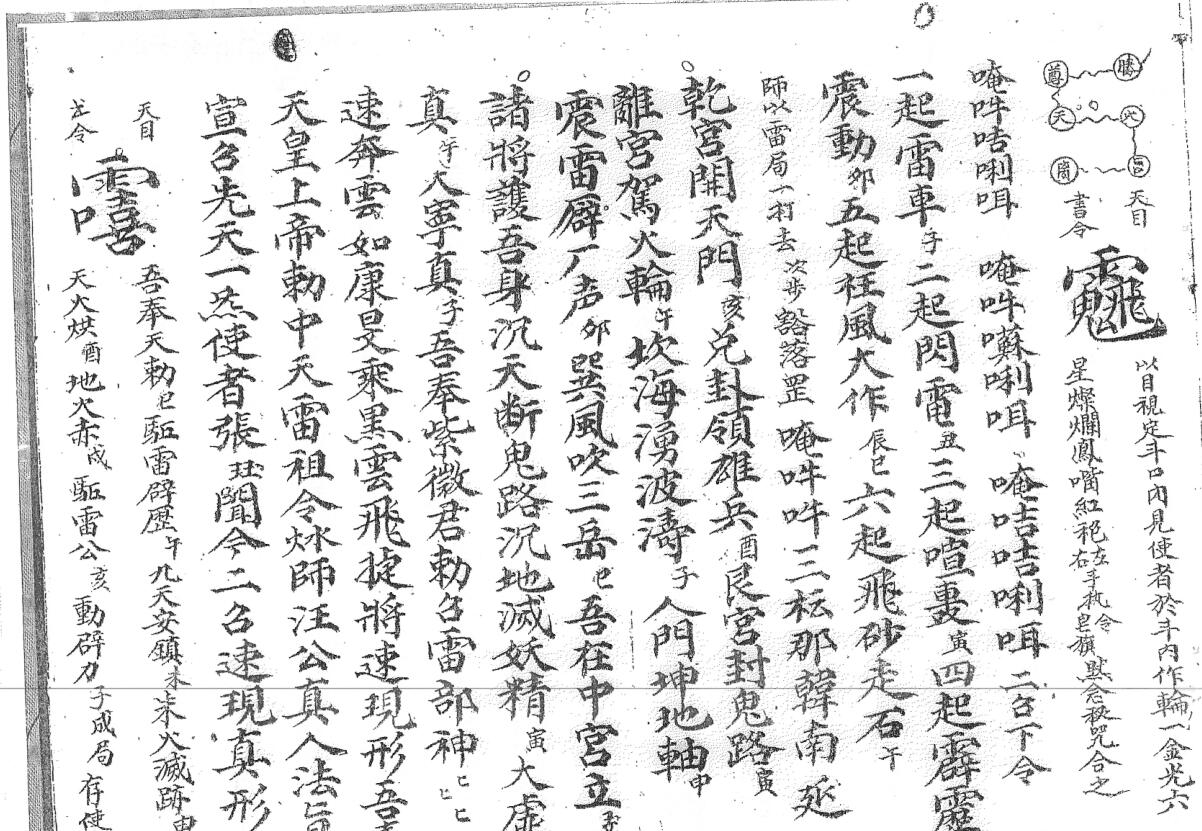 尊 勝
天 火
天目
書令
以目視定斗口內見使者於斗內作輪一金光六
星燦爛鳳嘴紅袍左手執令右手皂旗默念秘咒合之
唵吽咭唎咡 唵吽囌唎咡 唵吉吉唎咡二召下令
一起雷車子二起閃雷丑三起喧轟寅四起霹靂
震動卯五起狂風大作辰巳六起飛砂走石午
師以雷局一打去 次步豁落罡 唵吽吽三枟那韓南延
乾宮開天門亥兌卦領雄兵酉艮宮封鬼路寅
離宮駕火輪午坎海湧波濤子人門坤地軸申
震雷僻厂声卯巽風吹三岳巳吾在中宮立
諸將護吾身沉天断鬼路沉地滅妖精寅大虛
真午大寧真子吾奉紫微君勅召雷部神
速奔雲如康旻乘黑雲飛捷將速現形吾
天皇上帝勅中天雷祖令烌師汪公真人法旨
宣召先天一炁使者張玨聞令二召速現真形
天目
吾奉天勅巳駈雷辟歷午九天安鎮未束火滅跡申
天火烘酉地火赤戍駈雷公亥動辟力子成局存使